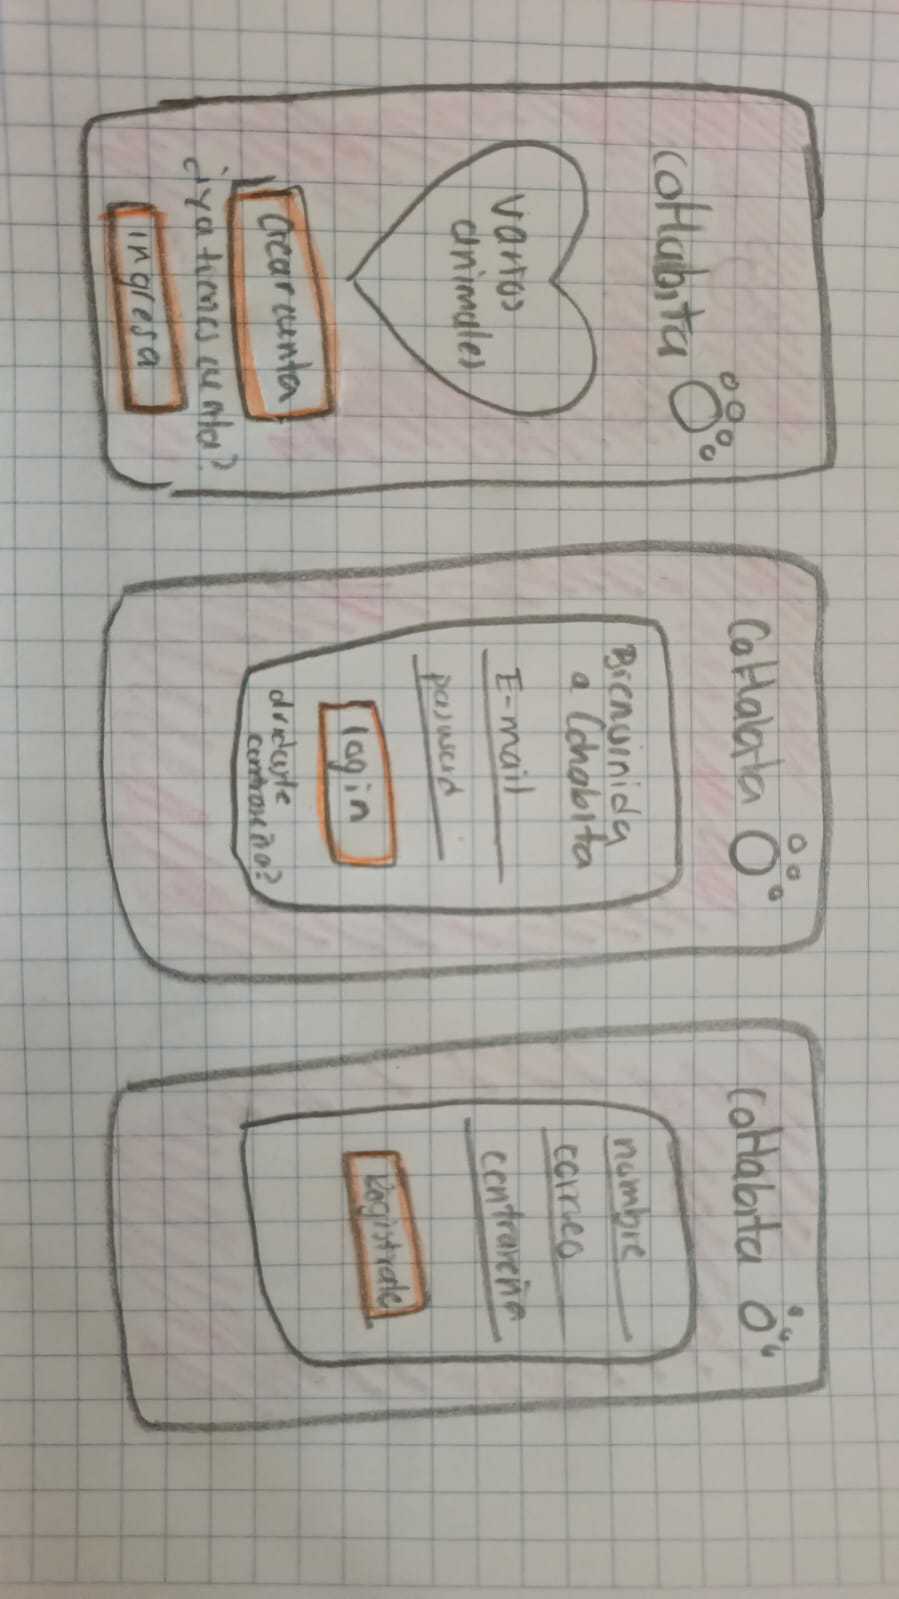 CoHabita
varios
animales
Crear cuenta
¿ya tienes cuenta?
ingresa
CoHabita
Bienvinida
a Cohabita
E-mail
pasword
login
contraseña?
CoHabita
nombre
correo
contraseña
Registrate